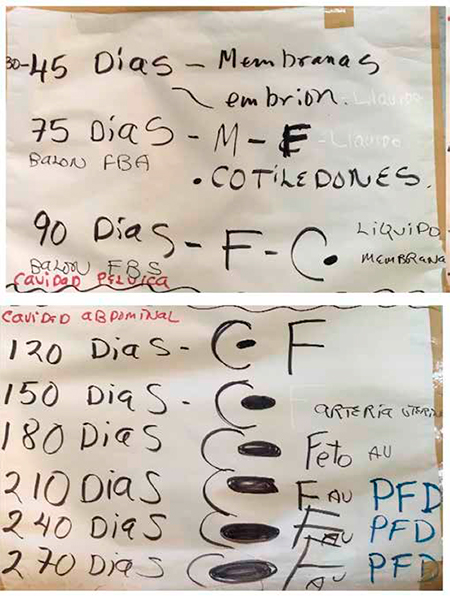 30-45 Dias - Membranas
embrion. Liquido
75 Dias - M - F - Liquido
BALON FBA
• COTILEDONES.
90 Dias - F - C LIQUIDO
BALON FBS MEMBRANA
CAVIDAD PELVICA
CAVIDAD ABDOMINAL
120 Dias - C F
150 Dias - C F ARTERIA UTERIN
180 Dias C Feto AU
210 Dias C F AU PFD
240 Dias C F AU PFD
270 Dias C F AU PFD